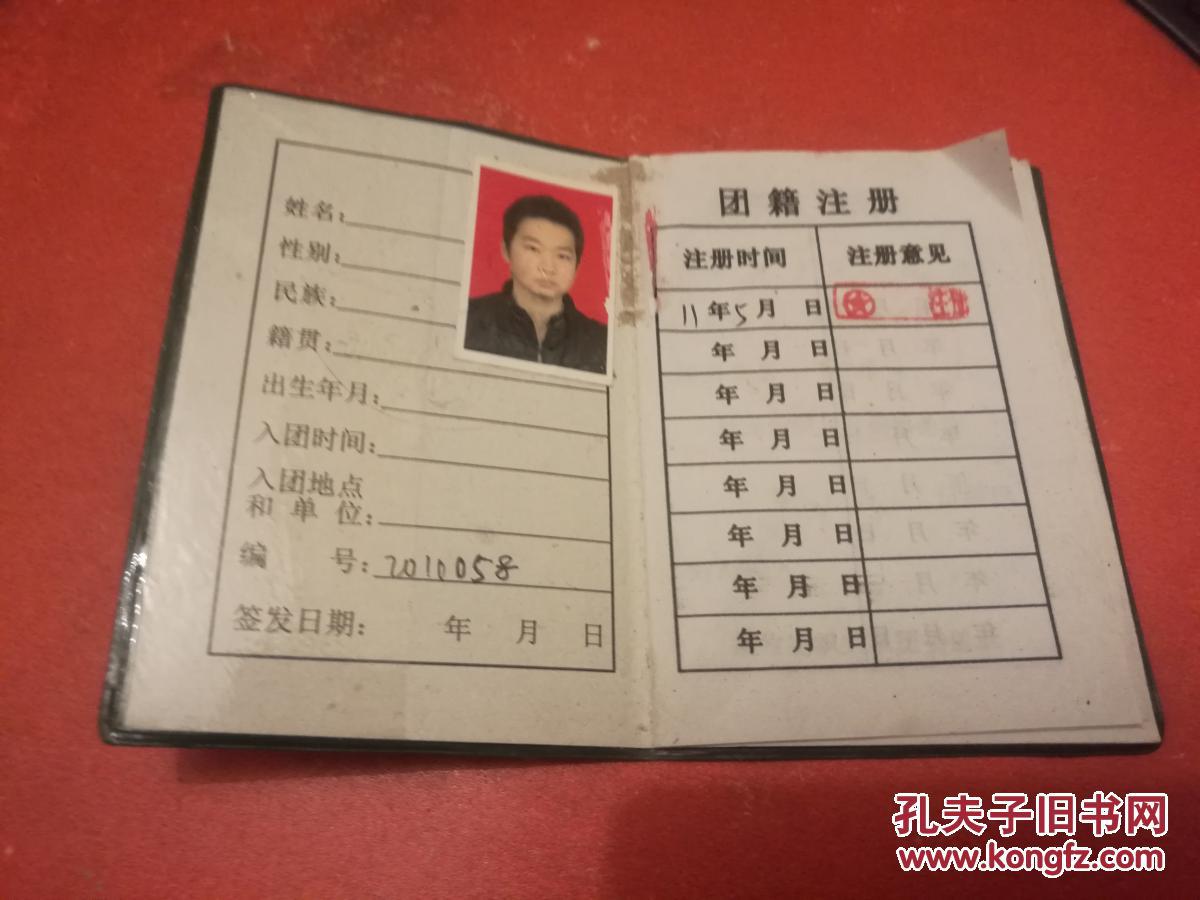 姓名:
性别:
民族:
籍贯:
出生年月:
入团时间:
入团地点
和单位:
编号:2010058
签发日期: 年 月 日
团籍注册
注册时间 注册意见
11年5月 日 注册
年 月 日
年 月 日
年 月 日
年 月 日
年 月 日
年 月 日
年 月 日
孔夫子旧书网
www.kongfz.com